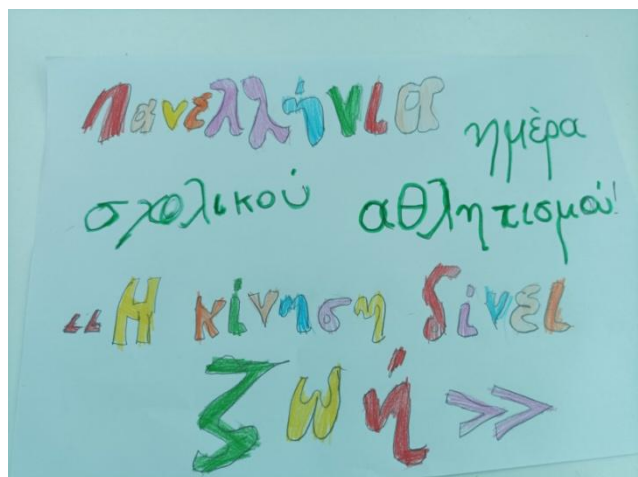 Πανελλήνια ημέρα
σχολικού αθλητισμού!
“Η κίνηση δίνει
ζωή»